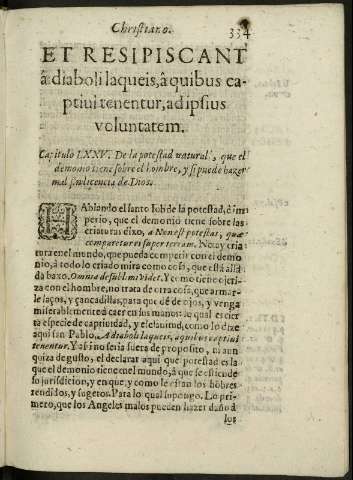 Christiano.
334
ET RESIPISCANT
â diaboli laqueis, â quibus ca-
ptiui tenentur, ad ipsius
voluntatem.
Capitulo LXXV. De la potestad natural, que el
demonio tiene sobre el hombre, y si puede hazer
mal sin licencia de Dios.
HAblando el santo Iob de la potestad, ô im
perio, que el demonio tiene sobre las
criaturas dixo, a Non est potestas, quæ
comparetur ei super terram. No ay cria
tura en el mundo, que pueda competir con el demo
nio, à todo lo criado mira como cosa, que està allà
da baxo. Omne sublime videt. Y como tiene ojeri-
za con el hombre, no trata de otra cosa, que armar-
le laços, y çancadillas, para que dê de ojos, y venga
miserablemente à caer en sus manos: lo qual es cier
ta especie de captiuidad, y esclauitud, como lo dixo
aqui san Pablo. A diaboli laqueis, a quibus captiui
tenentur. Y assi no seria fuera de proposito, ni aun
quiza de gusto, el declarar aqui que potestad es la
que el demonio tiene en el mundo, â que se estiende
su jurisdicion, y en que, y como le estan los hõbres
rendidos, y sugetos. Para lo qual supongo. Lo pri-
mero, que los Angeles malos pueden hazer daño â
los